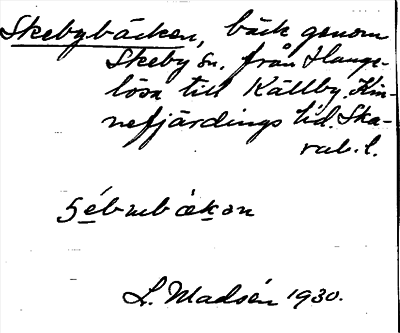 Skebybäcken, bäck genom
Skeby sn. från Hangs-
lösa till Källby, Kin-
nefjärdings hd. Ska-
rab. l.
L. Madsén 1930.